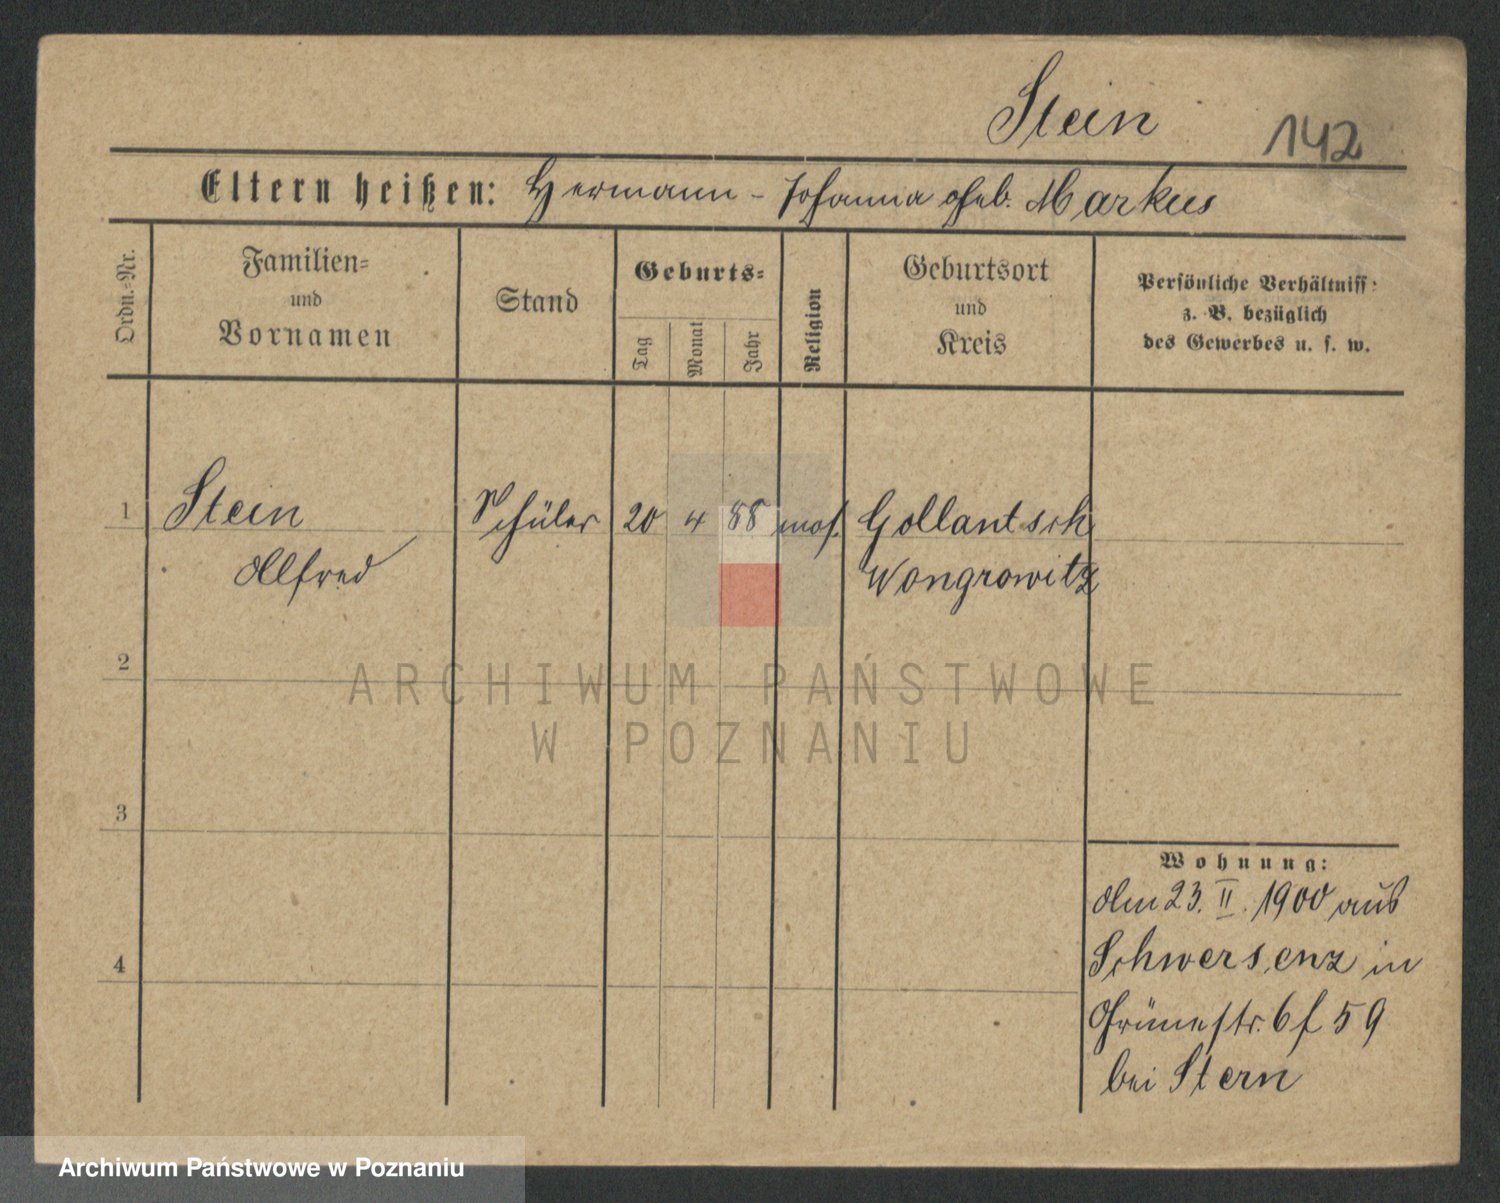 Stein
142
Eltern heißen: Hermann - Johanna geb. Markus
Ordn.-Nr.
Familien-
und
Vornamen
Stand
Geburts-
Tag
Monat
Jahr
Religion
Geburtsort
und
Kreis
Persönliche Verhältniss:
z. B. bezüglich
des Gewerbes u. s. w.
1 Stein Schüler 20 4 88 mos. Gollantsch
Alfred Wongrowitz
2
ARCHIWUM PAŃSTWOWE
W POZNANIU
3
4
Wohnung:
Am 23. II. 1900 aus
Schwersenz in
Grünestr. 6 59
bei Stern
Archiwum Państwowe w Poznaniu